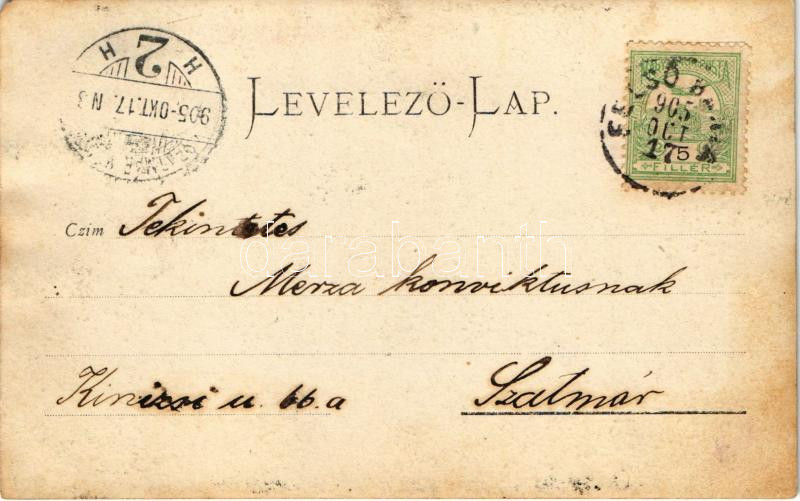 H 2 H
905. OKT. 17. N 3
LEVELEZŐ-LAP.
905
OCT
17
5
FILLÉR
Czim Tekintetes
Merza konviktusnak
Kinizsi u. 66.a
Szatmár
darabanth